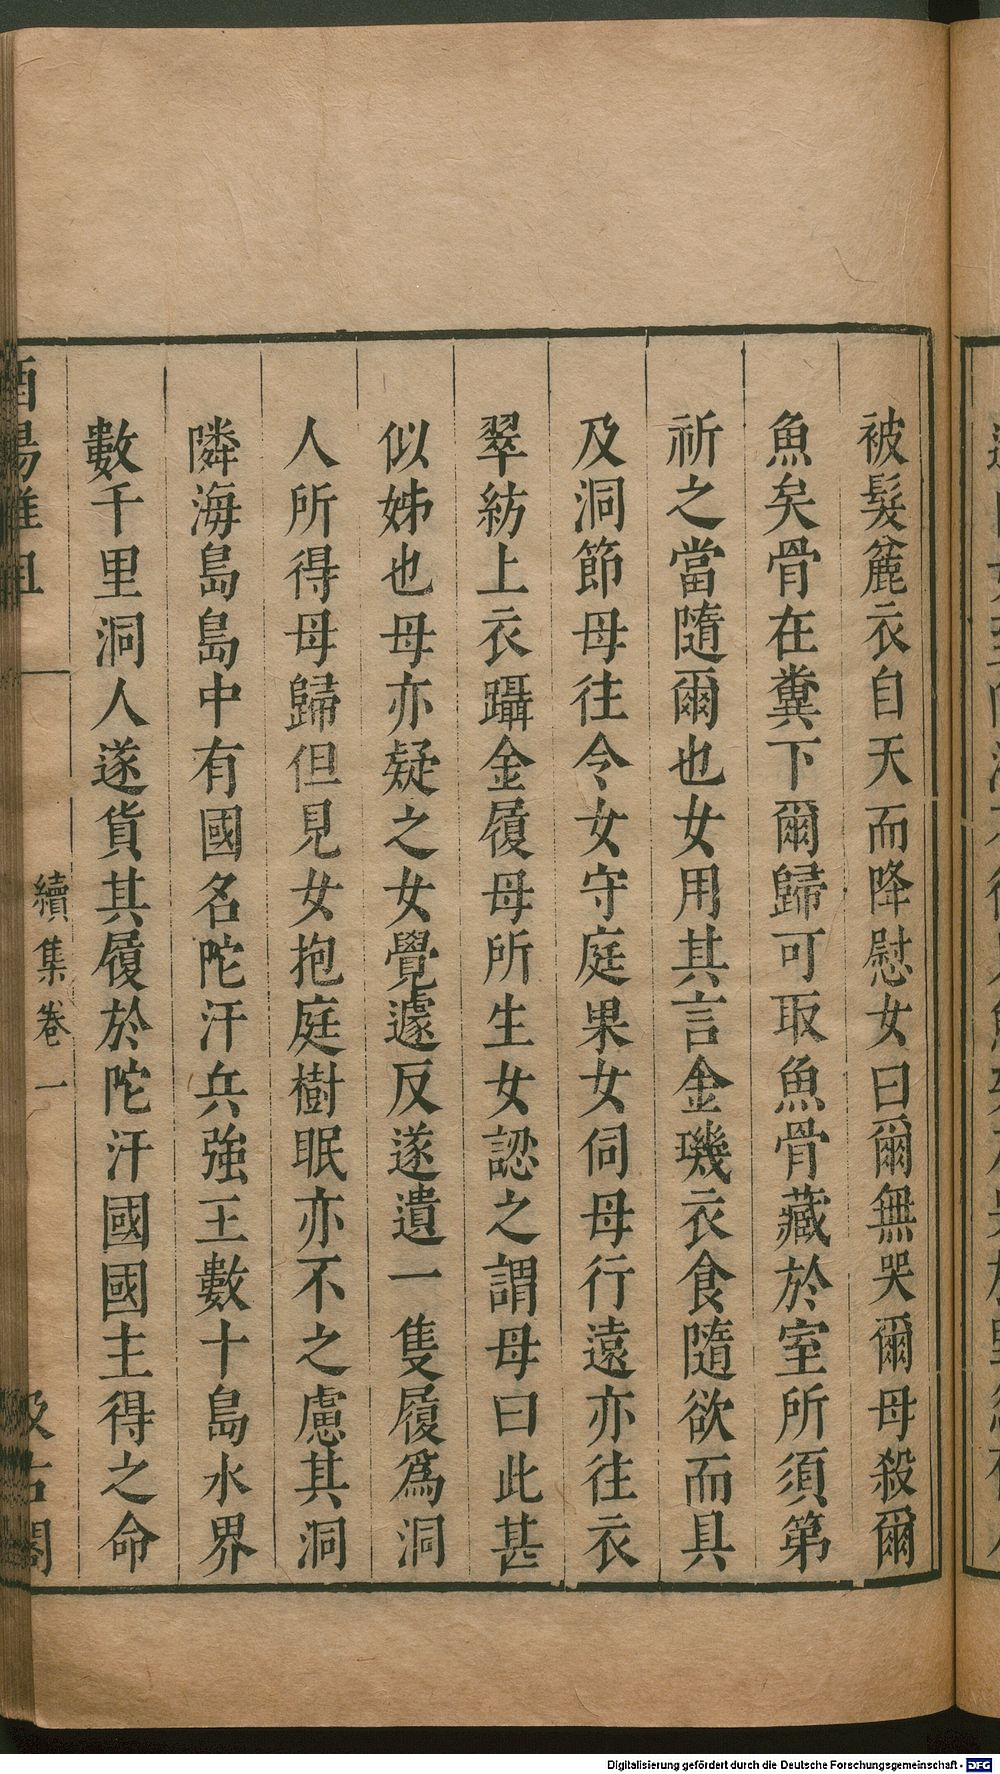 被髮麄衣自天而降慰女曰爾無哭爾母殺爾
魚矣骨在糞下爾歸可取魚骨藏於室所須第
祈之當隨爾也女用其言金璣衣食隨欲而具
及洞節母往令女守庭果女伺母行遠亦往衣
翠紡上衣躡金履母所生女認之謂母曰此甚
似姊也母亦疑之女覺遽反遂遺一隻履爲洞
人所得母歸但見女抱庭樹眠亦不之慮其洞
隣海島島中有國名陀汗兵強王數十島水界
數千里洞人遂貨其履於陀汗國國主得之命
酉陽雜俎
續集卷一
汲古閣
Digitalisierung gefördert durch die Deutsche Forschungsgemeinschaft - DFG